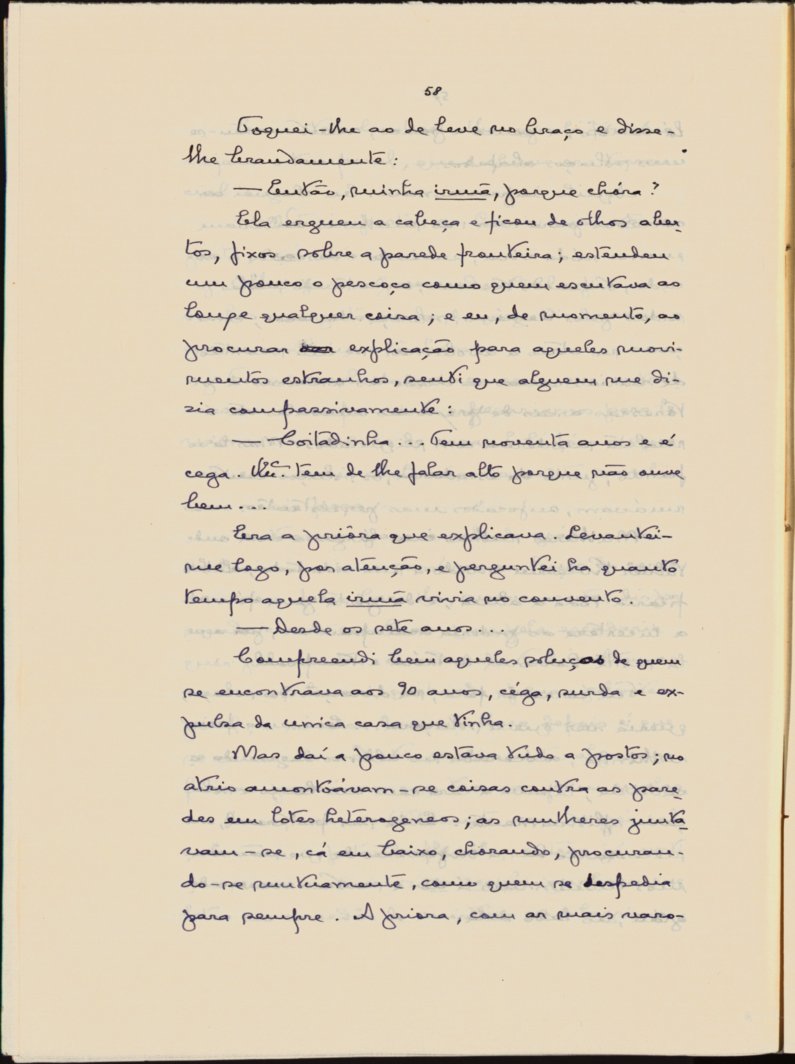 58
Toquei-lhe ao de leve no braço e disse-
lhe brandamente:
— Então, minha irmã, porque chóra?
Ela ergueu a cabeça e ficou de olhos aber-
tos, fixos sobre a parede fronteira; estendeu
um pouco o pescoço como quem escutava ao
longe qualquer coisa; e eu, de momento, ao
procurar explicação para aqueles movi-
mentos estranhos, senti que alguem me di-
zia compassivamente:
— Coitadinha... Tem noventa anos e é
cega. Vmc. tem de lhe falar alto porque não ouve
bem...
Era a priôra que explicava. Levantei-
me logo, por atenção, e perguntei ha quanto
tempo aquela irmã vivia no convento.
— Desde os sete anos...
Compreendi bem aqueles soluços de quem
se encontrava aos 90 anos, céga, surda e ex-
pulsa da unica casa que tinha.
Mas daí a pouco estava tudo a postos; no
atrio amontoávam-se coisas contra as pare-
des em lotes heterogeneos; as mulheres junta-
vam-se, cá em baixo, chorando, procuran-
do-se mutuamente, como quem se despedia
para sempre. A priora, com ar mais varo-